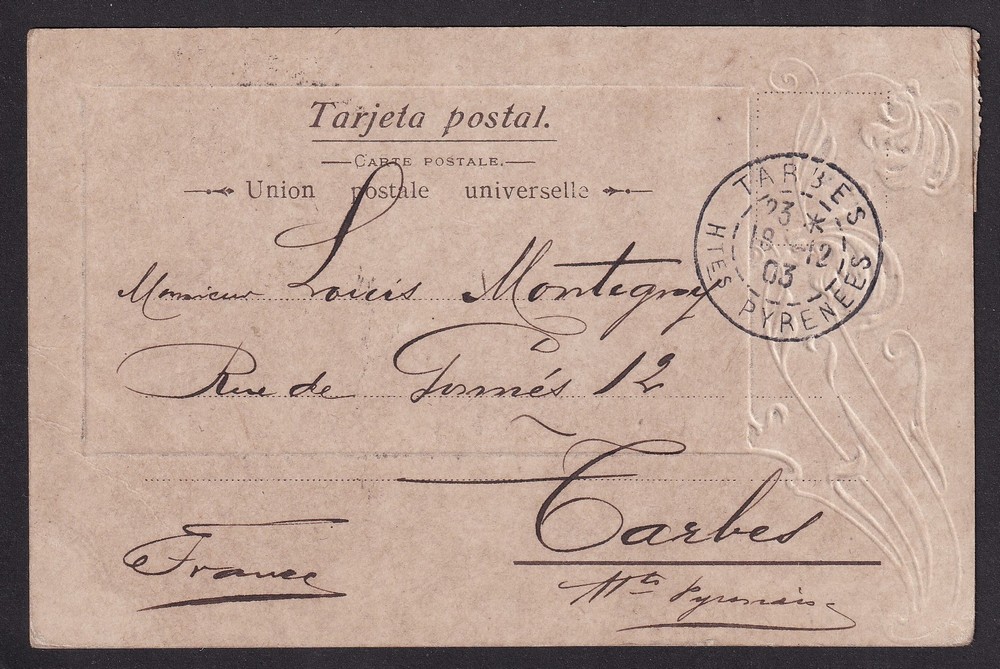 Tarjeta postal.
CARTE POSTALE.
Union postale universelle
TARBES
23 *
18 -12
03
HTES PYRENEES
Monsieur Louis Montegny
Rue de 12
Tarbes
France
Htes